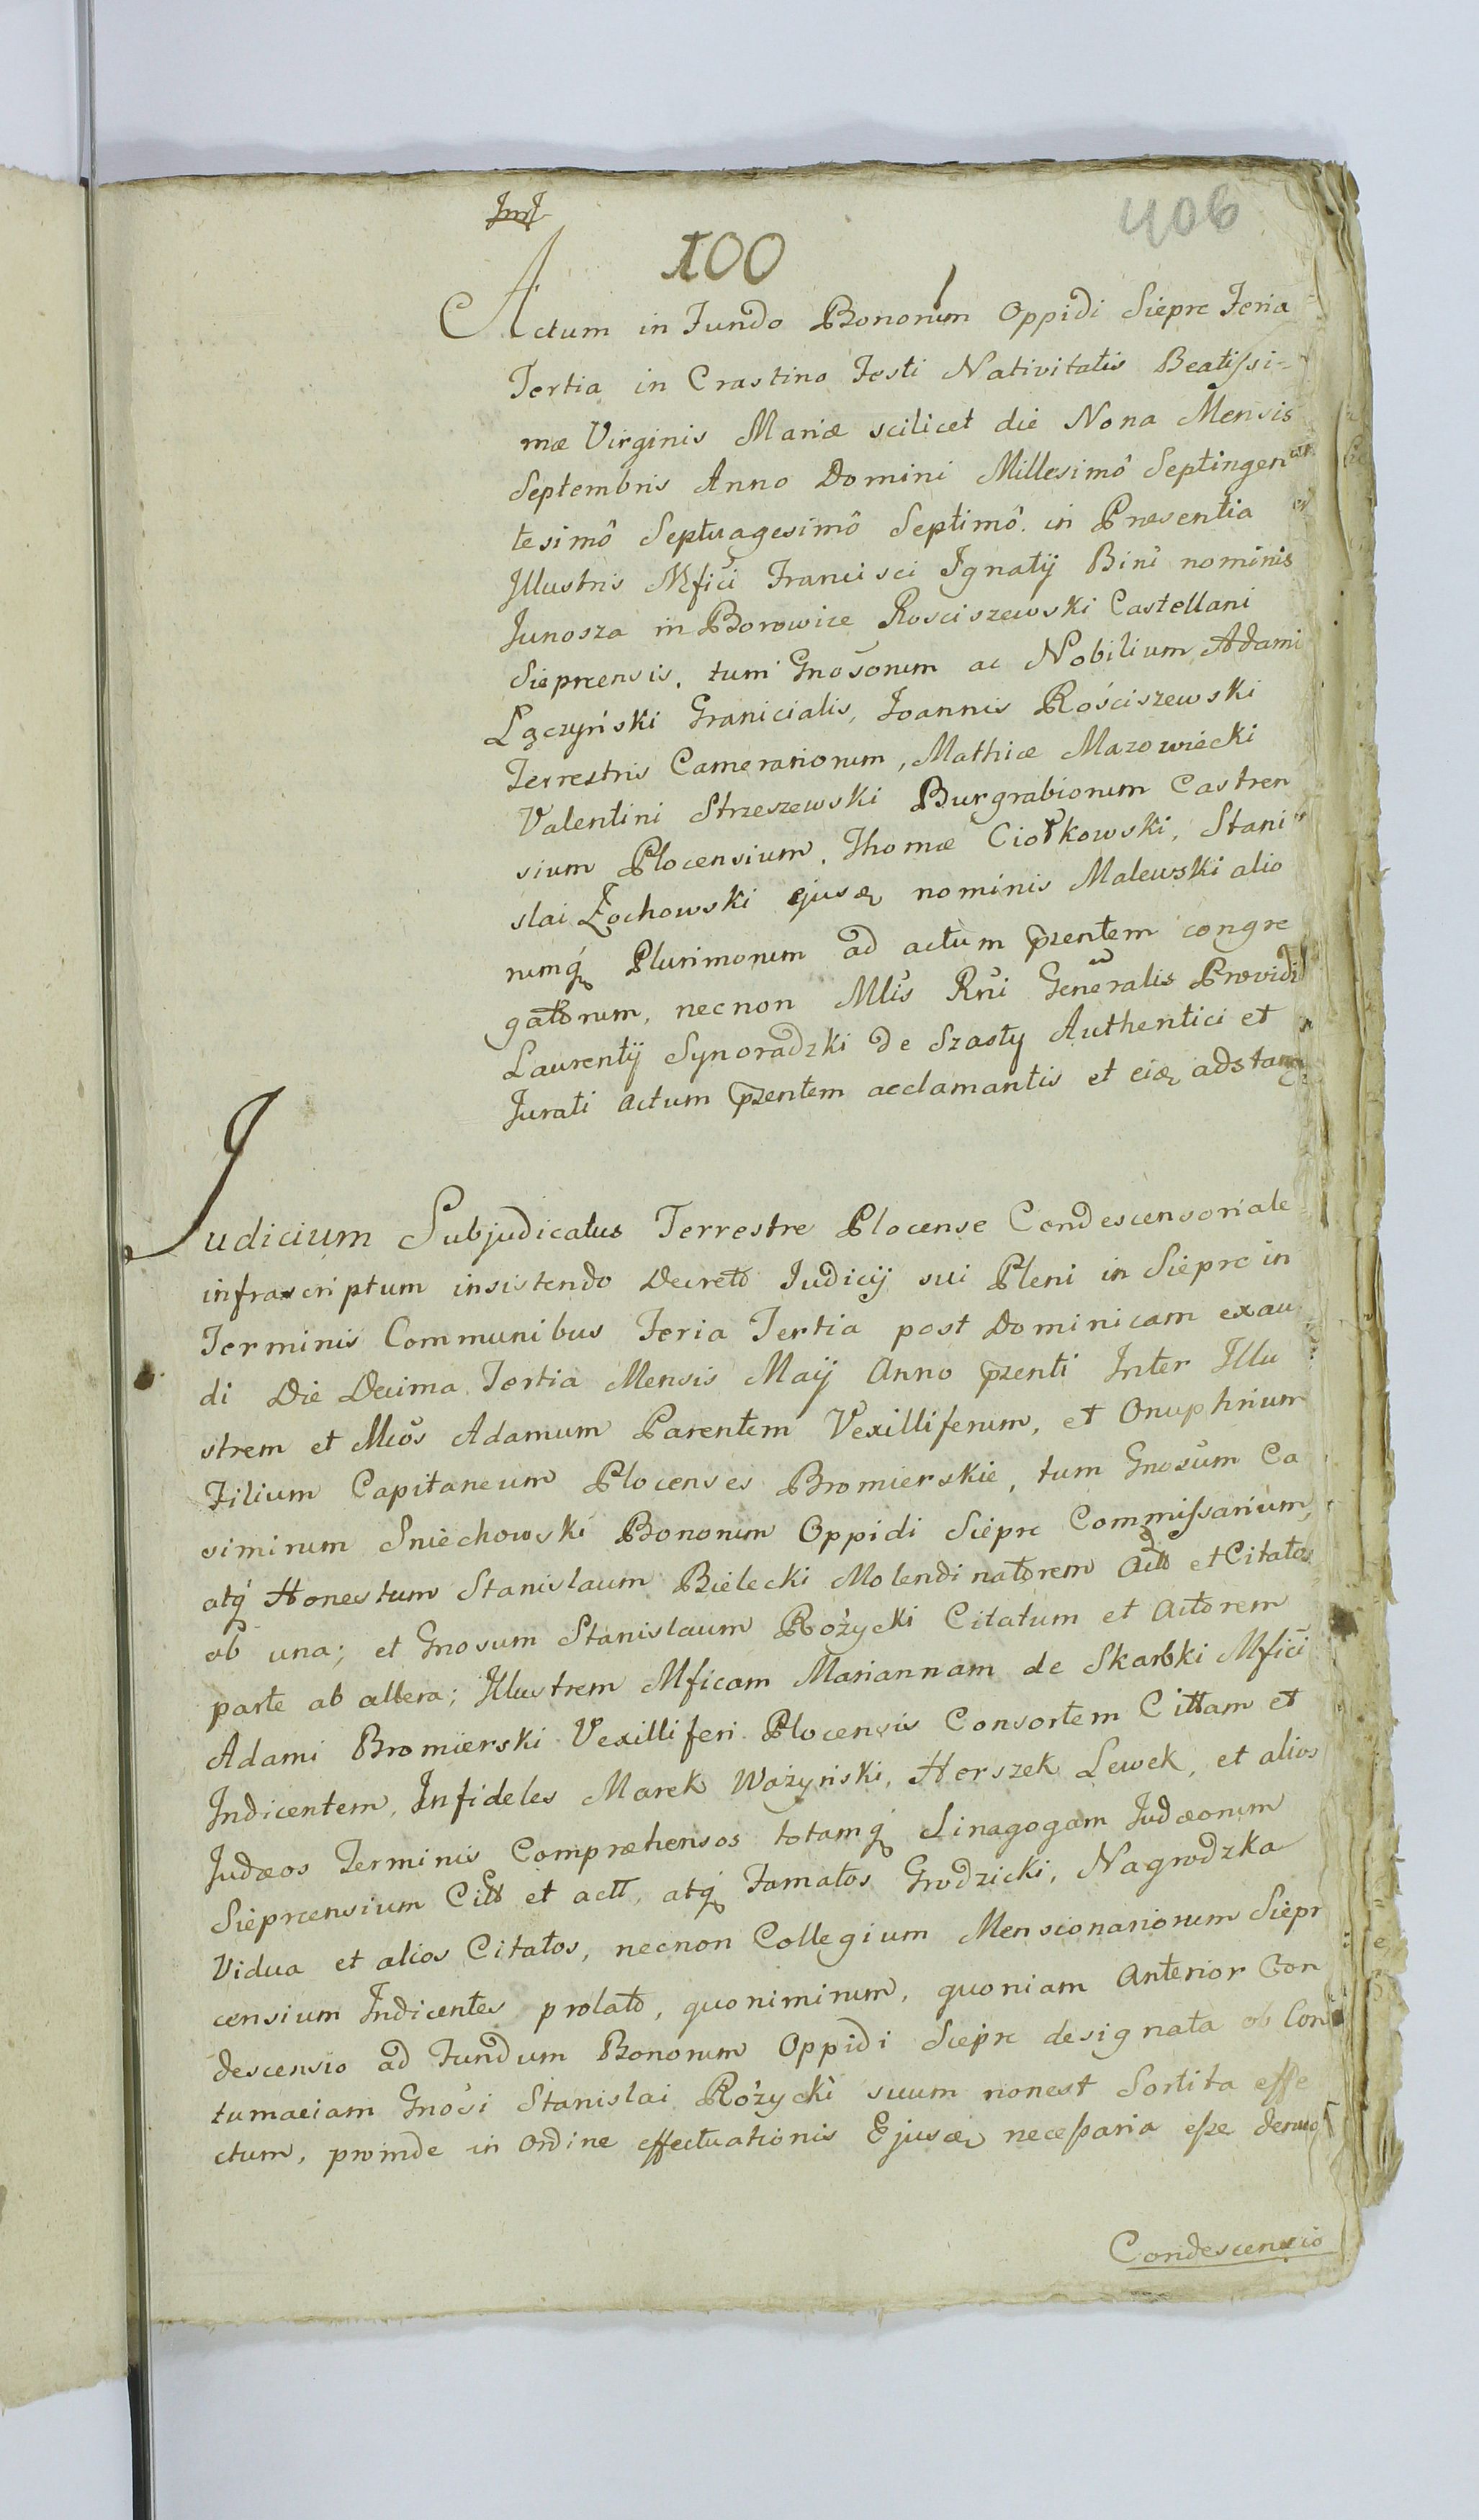 406
100
Actum in Fundo Bonorum Oppidi Sieprc Feria
Tertia in Crastino Festi Nativitatis Beatissi=
mæ Virginis Mariæ scilicet die Nona Mensis
Septembris Anno Domini Millesimô Septingen
tesimô Septuagesimô Septimô. in Præsentia
Illustris Mfici Francisci Ignatij Bini nominis
Junosza in Borowice Rosciszewski Castellani
Sieprcensis, tum Gnosorum ac Nobilium Adami
Lączyński Granicialis, Joannis Rościszewski
Terrestris Camerariorum, Mathiæ Mazowiecki
Valentini Strzeszewski Burgrabiorum Castren
sium Plocensium, Thomæ Ciołkowski, Stani
slai Żochowski ejusq nominis Malewski alio
rumq́ Plurimorum ad actum pzentem congre
gatorum, necnon Mlis Rni Generalis Providi
Laurentij Synoradzki de Szasty Authentici et
Jurati actum pzentem acclamantis et eiq adstan
Judicium Subjudicatus Terrestre Plocense Condescensoriale
infrascriptum insistendo Decreto Judicij sui Pleni in Sieprc in
Terminis Communibus Feria Tertia post Dominicam exau
di Die Decima Tertia Mensis Maij Anno pzenti Inter Illu
strem et Mcos Adamum Parentem Vexilliferum, et Onuphrium
Filium Capitaneum Plocenses Bromierskie, tum Gnosum Ca
simirum Sniechowski Bonorum Oppidi Sieprc Commissarium,
atq́ Honestum Stanislaum Bielecki Molendinatorem Actt et Citatos
ab una; et Gnosum Stanislaum Różycki Citatum et Actorem
parte ab altera; Illustrem Mficam Mariannam de Skarbki Mfici
Adami Bromierski Vexilliferi Plocensis Consortem Cittam et
Indicentem, Infideles Marek Ważyński, Herszek Lewek, et alios
Judæos Terminis Compræhensos totamq́ Sinagogam Judæorum
Sieprcensium Citt et actt, atq́ Famatos Grodzicki, Nagrodzka
Vidua et alios Citatos, necnon Collegium Mensionariorum Siepr
censium Indicentes prolato, quonimirum, quoniam Anterior Con
descensio ad Fundum Bonorum Oppidi Sieprc designata ob Con
tumaciam Gnosi Stanislai Różycki suum nonest Sortita effe
ctum, proinde in Ordine effectuationis Ejusq necessaria esse denuo
Condescensio